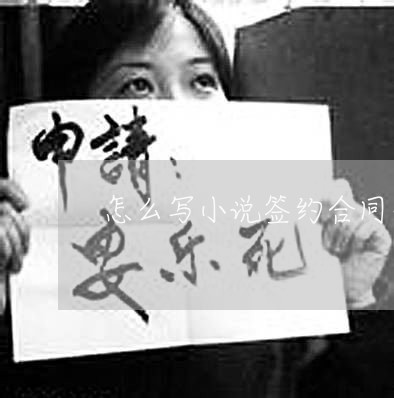 申請：
怎么写小说签约合同
安乐死